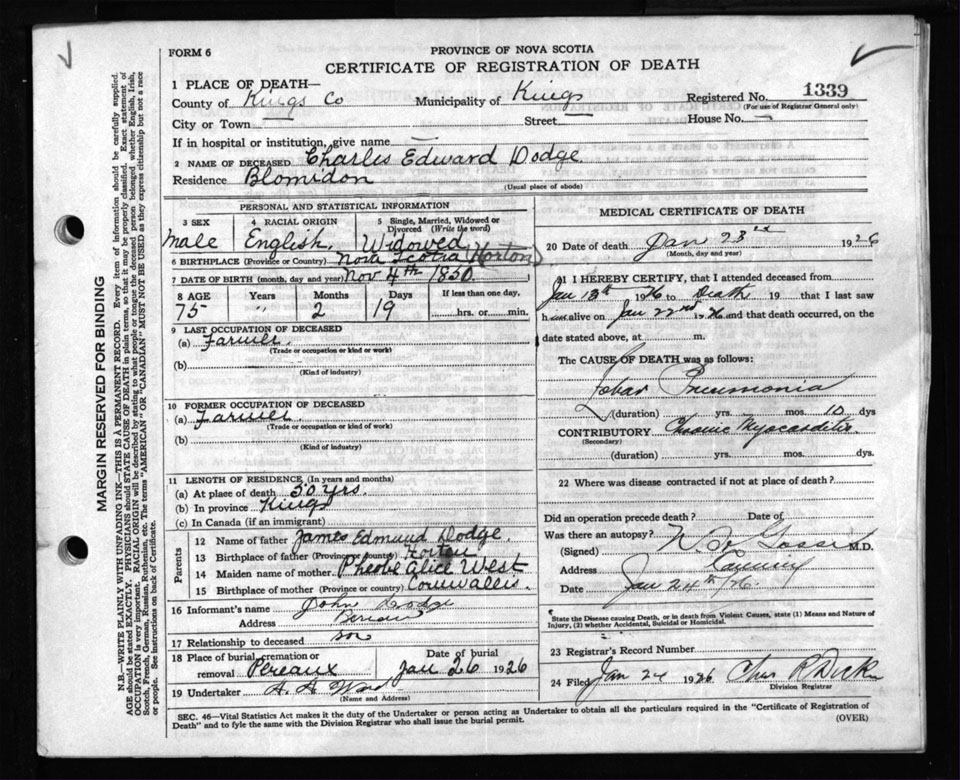 FORM 6
PROVINCE OF NOVA SCOTIA
CERTIFICATE OF REGISTRATION OF DEATH
1 PLACE OF DEATH—
County of Kings Co Municipality of Kings Registered No. 1339
(For use of Registrar General only)
City or Town Street House No.
If in hospital or institution, give name
2 NAME OF DECEASED Charles Edward Dodge
Residence Blomidon
(Usual place of abode)
PERSONAL AND STATISTICAL INFORMATION
3 SEX 4 RACIAL ORIGIN 5 Single, Married, Widowed or Divorced (Write the word)
Male English. Widowed
6 BIRTHPLACE (Province or Country) Nova Scotia (Horton)
7 DATE OF BIRTH (month, day, and year) Nov 4th 1850.
8 AGE Years Months Days If less than one day,
75 " 2 19 hrs. or min.
9 LAST OCCUPATION OF DECEASED
(a) Farmer.
(Trade or occupation or kind or work)
(b)
(Kind of industry)
10 FORMER OCCUPATION OF DECEASED
(a) Farmer
(Trade or occupation or kind or work)
(b)
(Kind of industry)
11 LENGTH OF RESIDENCE (In years and months)
(a) At place of death 50 yrs.
(b) In province Kings
(c) In Canada (if an immigrant)
Parents
12 Name of father James Edmund Dodge.
13 Birthplace of father (Province or country) Horton
14 Maiden name of mother Pheobe Alice West
15 Birthplace of mother (Province or country) Cornwallis.
16 Informant's name John Dodge
Address Pereau
17 Relationship to deceased son
18 Place of burial, cremation or removal Pereaux Date of burial Jan 26 1926
19 Undertaker
(Name and Address)
MEDICAL CERTIFICATE OF DEATH
20 Date of death Jan 23rd 1926
(Month, day and year)
21 I HEREBY CERTIFY, that I attended deceased from
Jan 13th 1926 to Death 19 that I last saw
h alive on Jan 22nd 26 and that death occurred, on the
date stated above, at m.
The CAUSE OF DEATH was as follows:
Lobar Pneumonia
(duration) yrs. mos. 10 dys
CONTRIBUTORY Chronic Myocarditis
(Secondary)
(duration) yrs. mos. dys.
22 Where was disease contracted if not at place of death?
Did an operation precede death? Date of
Was there an autopsy?
(Signed) M.D.
Address Canning
Date Jan 24th/26.
State the Disease causing Death, or in death from Violent Causes, state (1) Means and Nature of
Injury, (2) whether Accidental, Suicidal or Homicidal.
23 Registrar's Record Number
24 Filed Jan 24 1926 Chas R Dick
Division Registrar
SEC. 46—Vital Statistics Act makes it the duty of the Undertaker or person acting as Undertaker to obtain all the particulars required in the "Certificate of Registration of
Death" and to fyle the same with the Division Registrar who shall issue the burial permit.
(OVER)
MARGIN RESERVED FOR BINDING
N.B.—WRITE PLAINLY WITH UNFADING INK—THIS IS A PERMANENT RECORD. Every item of information should be carefully supplied.
AGE should be stated EXACTLY. PHYSICIANS should STATE CAUSE OF DEATH in plain terms, so that it may be properly classified. Exact statement of
OCCUPATION is very important. RACIAL ORIGIN will be described by stating to what people or tongue the deceased person belonged whether English, Irish,
Scotch, French, German, Russian, Ruthenian, etc. The terms "AMERICAN" OR "CANADIAN" MUST NOT BE USED as they express citizenship but not a race
or people. See instructions on back of Certificate.